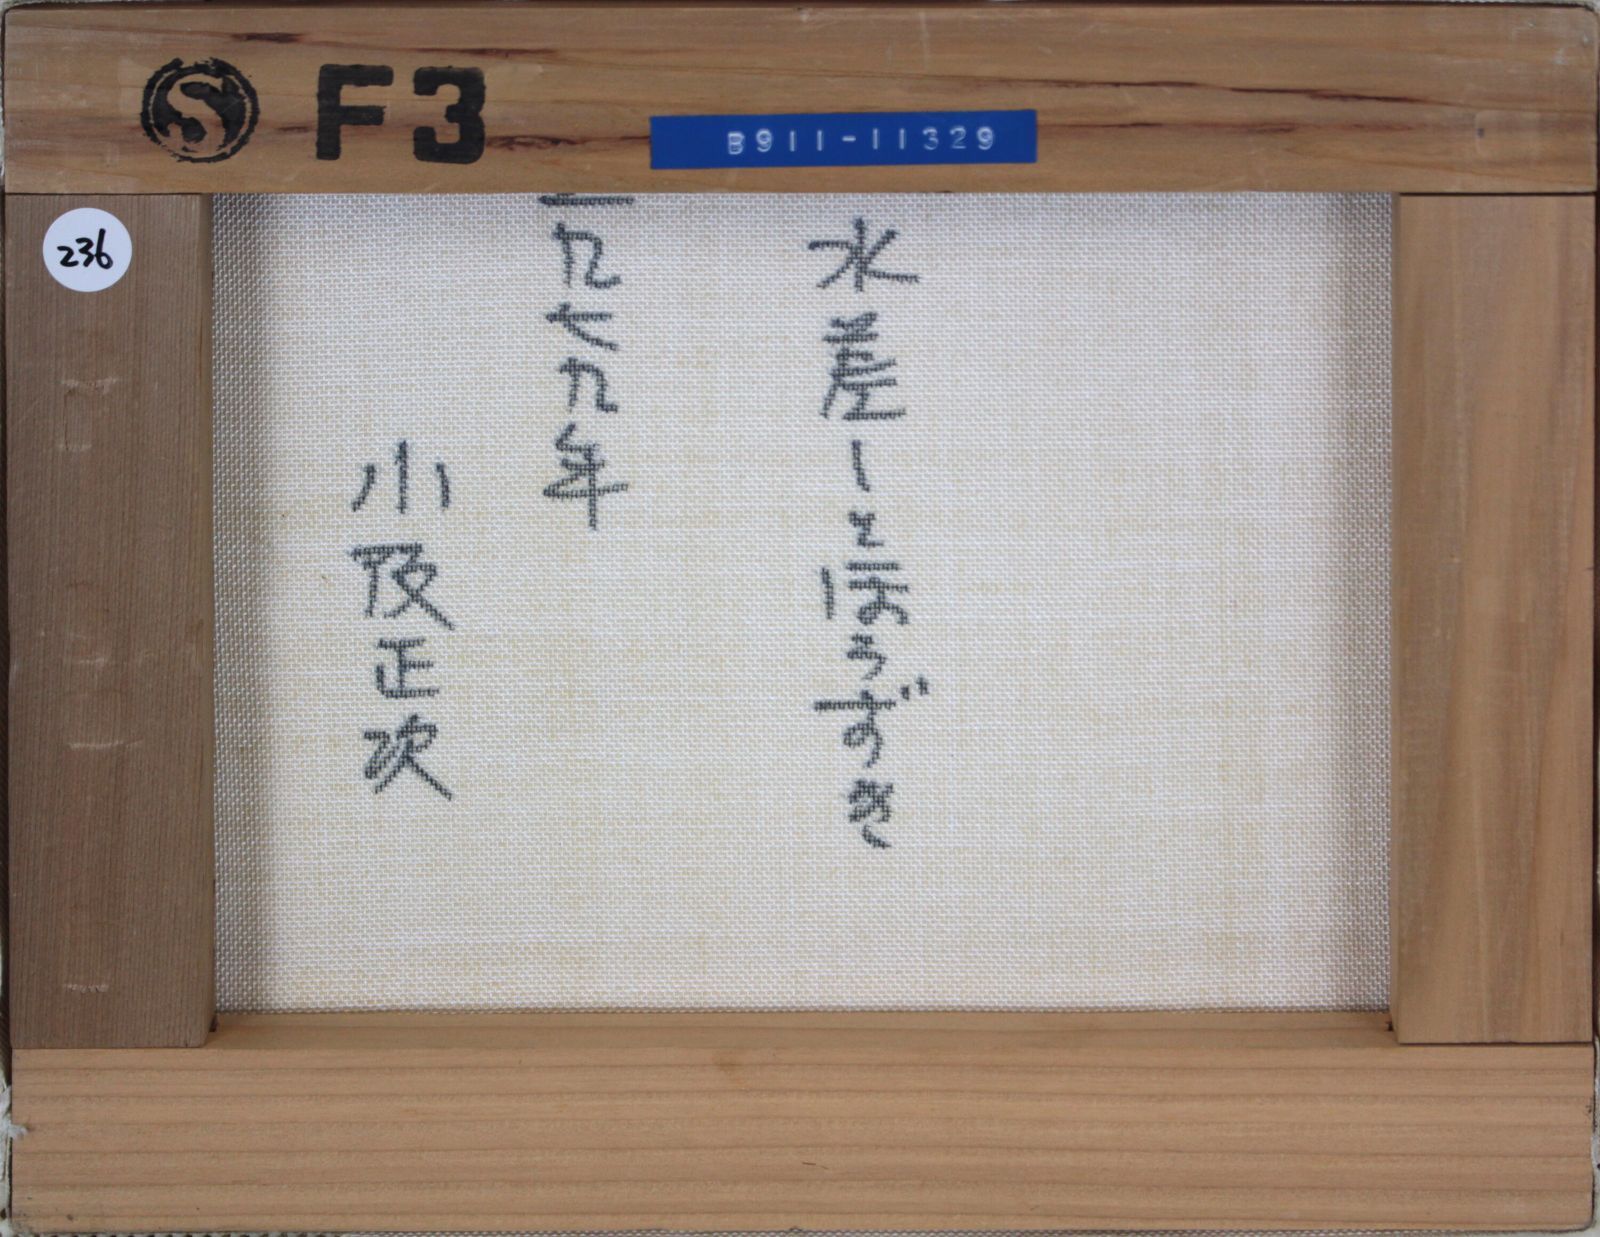 F3
B911-11329
236
水差しとほうずき
一九七九年
小阪正次